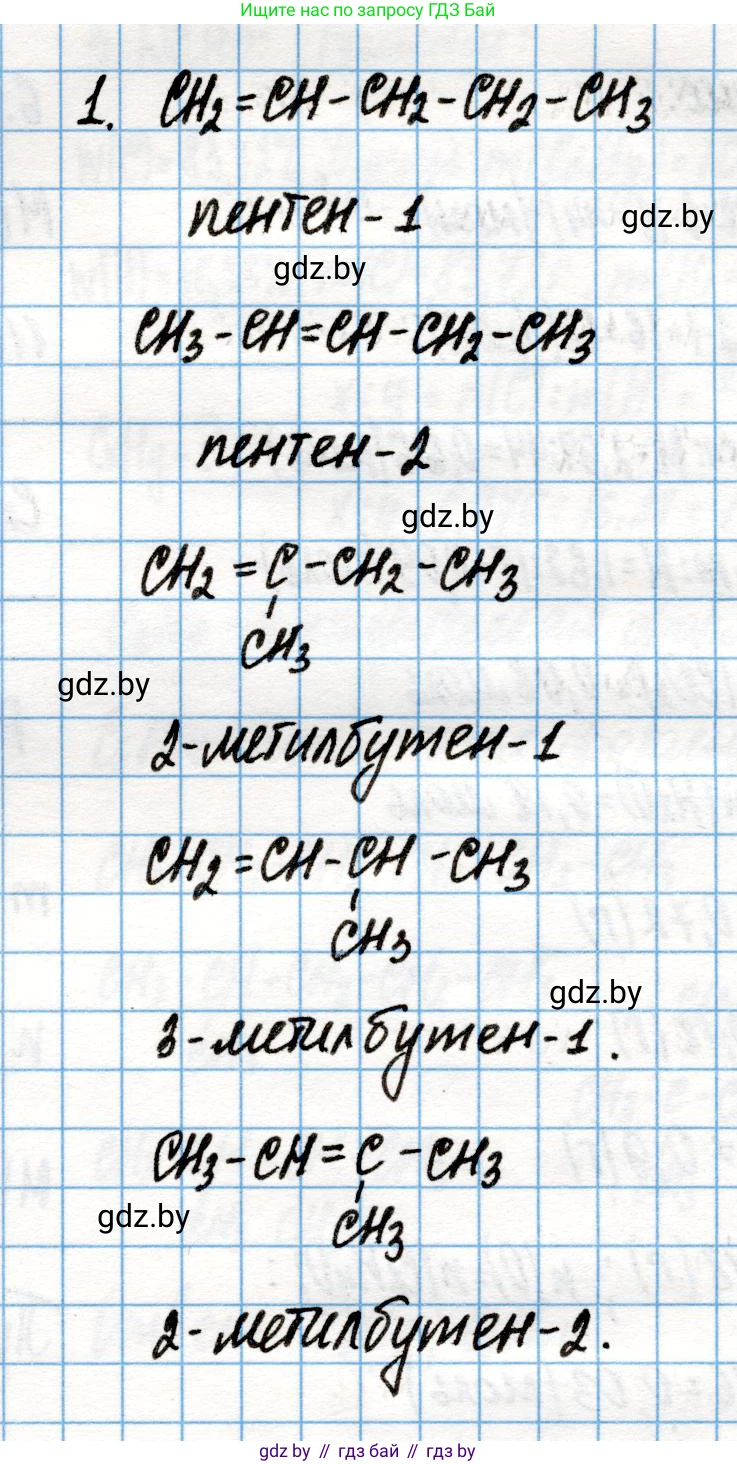 Ищите нас по запросу ГДЗ Бай
1. CH2=CH-CH2-CH2-CH3
пентен-1
gdz.by
gdz.by
CH3-CH=CH-CH2-CH3
пентен-2
gdz.by
CH2=C-CH2-CH3
CH3
gdz.by
2-метилбутен-1
CH2=CH-CH-CH3
CH3
gdz.by
3-метилбутен-1.
CH3-CH=C-CH3
CH3
gdz.by
2-метилбутен-2.
gdz by // гдз бай // гдз by